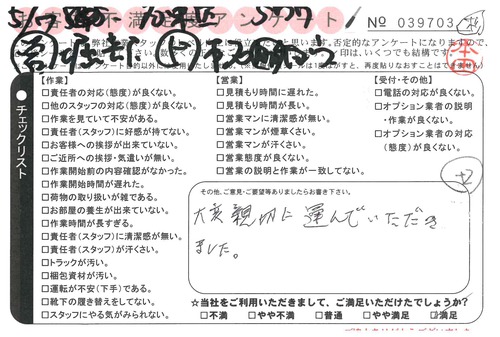 お客様不満足アンケート
№ 039703
チェックリスト
【作業】
□責任者の対応(態度)が良くない。
□他のスタッフの対応(態度)が良くない。
□作業を見ていて不安がある。
□責任者(スタッフ)に好感が持てない。
□お客様への挨拶が出来ていない。
□ご近所への挨拶・気遣いが無い。
□作業開始前の内容確認がなかった。
□作業開始時間が遅れた。
□荷物の取り扱いが雑である。
□お部屋の養生が出来ていない。
□作業時間が長すぎる。
□責任者(スタッフ)に清潔感が無い。
□責任者(スタッフ)が汗くさい。
□トラックが汚い。
□梱包資材が汚い。
□運転が不安(下手)である。
□靴下の履き替えをしてない。
□スタッフにやる気がみられない。
【営業】
□見積もり時間に遅れた。
□見積もり時間が長い。
□営業マンに清潔感が無い。
□営業マンが煙草くさい。
□営業マンが汗くさい。
□営業態度が良くない。
□営業の説明と作業が一致してない。
【受付・その他】
□電話の対応が良くない。
□オプション業者の説明
・作業が良くない。
□オプション業者の対応
(態度)が良くない。
その他、ご意見・ご要望等ありましたらお書き下さい。
大変親切に運んでいただき
ました。
☆当社をご利用いただきまして、ご満足いただけたでしょうか?
□不満 □やや不満 □普通 □やや満足 □満足